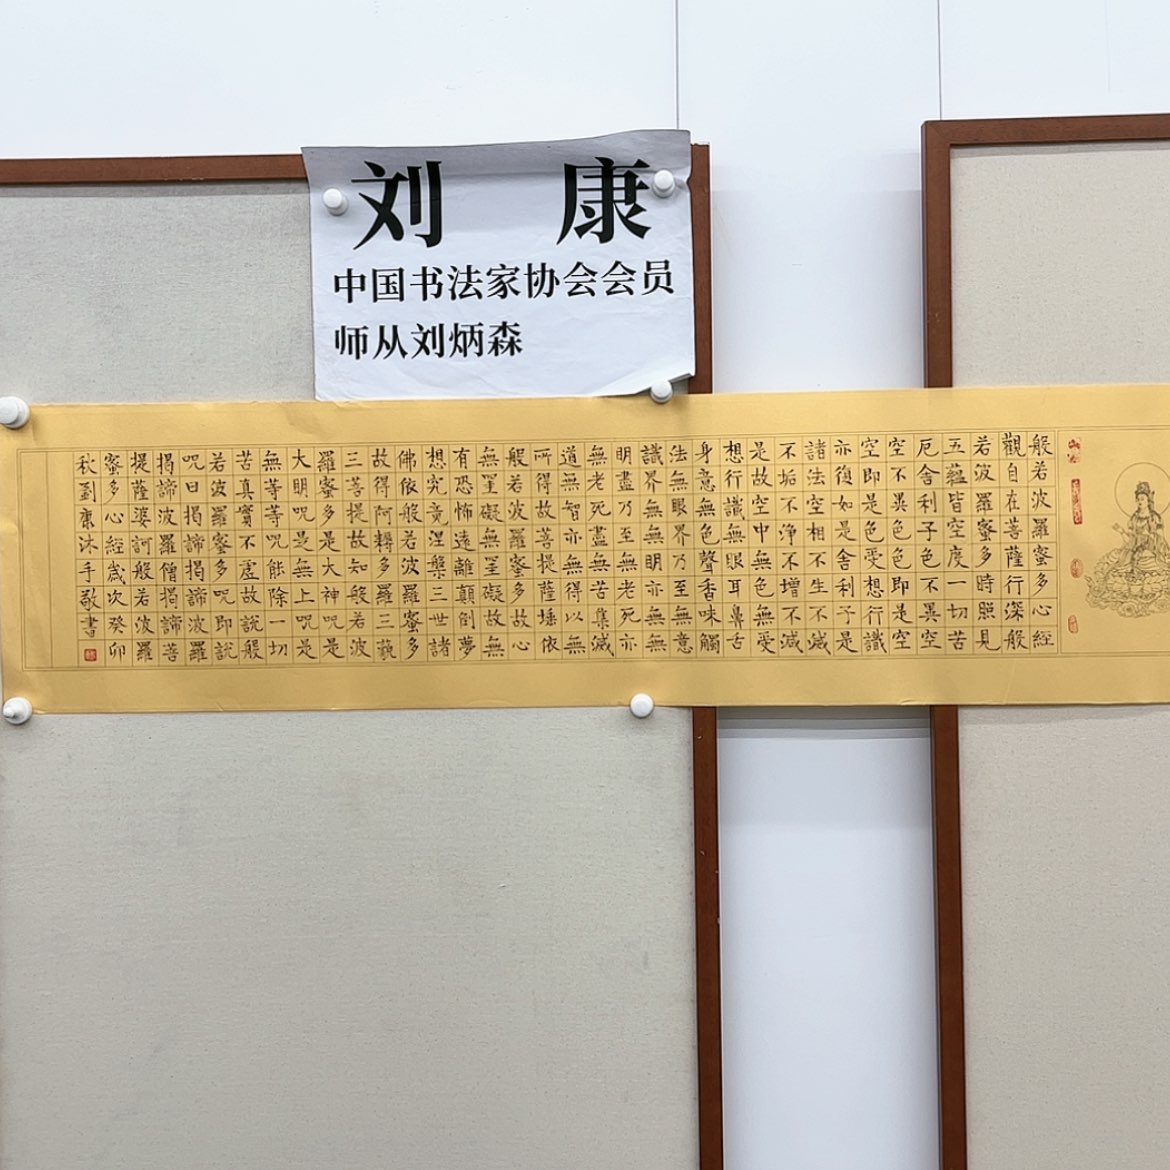 刘 康
中国书法家协会会员
师从刘炳森
般若波羅蜜多心經
觀自在菩薩行深般
若波羅蜜多時照見
五蘊皆空度一切苦
厄舍利子色不異空
空不異色色即是空
空即是色受想行識
亦復如是舍利子是
諸法空相不生不滅
不垢不淨不增不減
是故空中無色無受
想行識無眼耳鼻舌
身意無色聲香味觸
法無眼界乃至無意
識界無無明亦無無
明盡乃至無老死亦
無老死盡無苦集滅
道無智亦無得以無
所得故菩提薩埵依
般若波羅蜜多故心
無罣礙無罣礙故無
有恐怖遠離顛倒夢
想究竟涅槃三世諸
佛依般若波羅蜜多
故得阿耨多羅三藐
三菩提故知般若波
羅蜜多是大神呪是
大明呪是無上呪是
無等等呪能除一切
苦真實不虛故說般
若波羅蜜多呪即說
呪曰揭諦揭諦波羅
揭諦波羅僧揭諦菩
提薩婆訶般若波羅
蜜多心經歲次癸卯
秋劉康沐手敬書